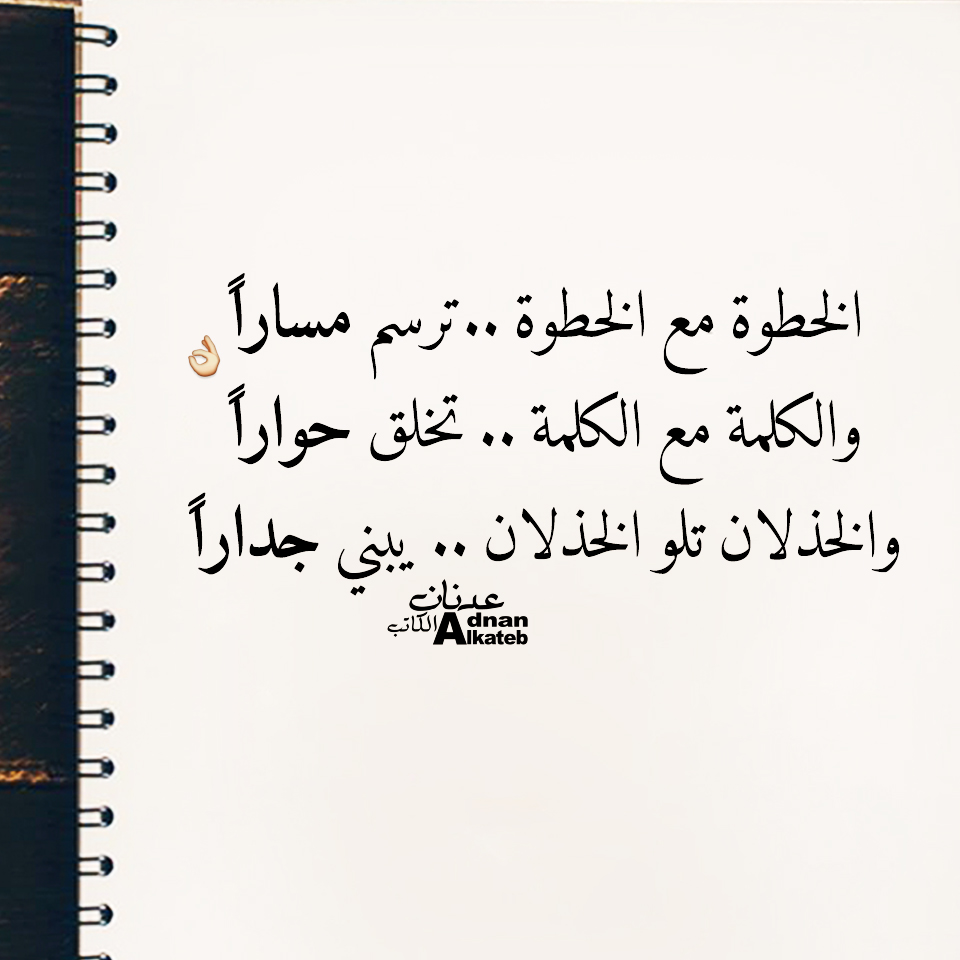 الخطوة مع الخطوة .. ترسم مساراً 👌
والكلمة مع الكلمة .. تخلق حواراً
والخذلان تلو الخذلان .. يبني جداراً
عدنان
الكاتب
Adnan
Alkateb